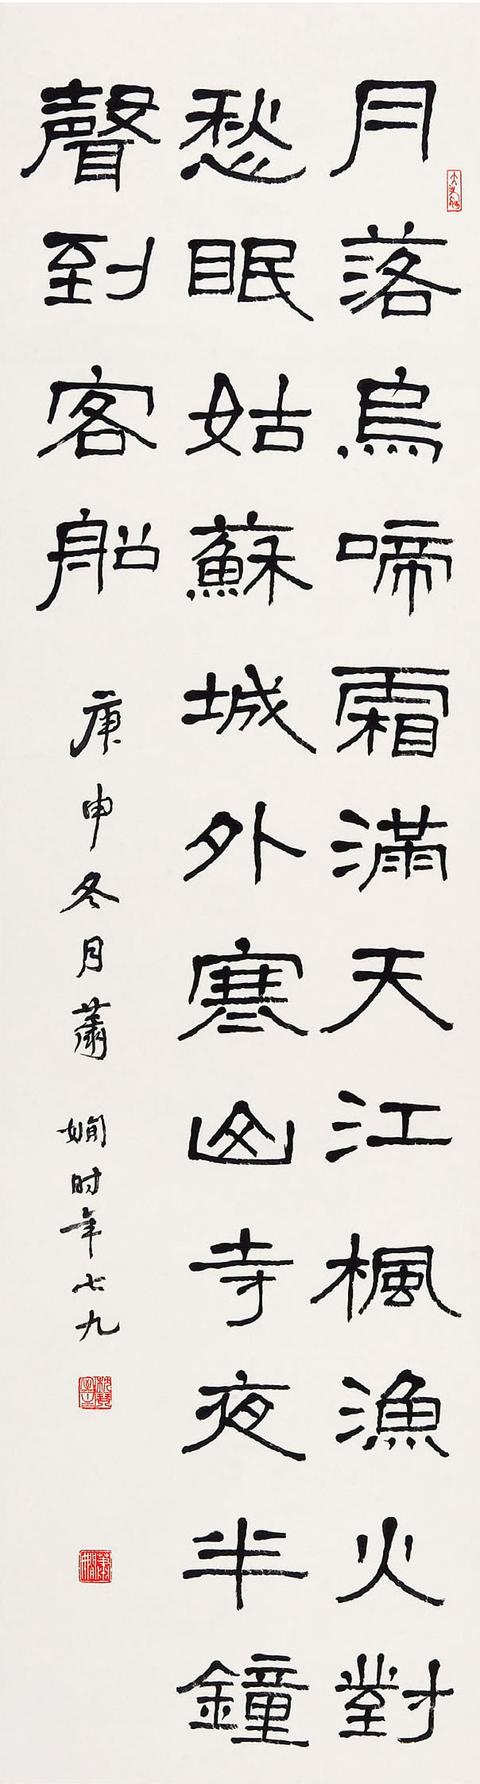 月落烏啼霜滿天江楓漁火對
愁眠姑蘇城外寒山寺夜半鐘
聲到客船
庚申冬月蕭嫻时年七九